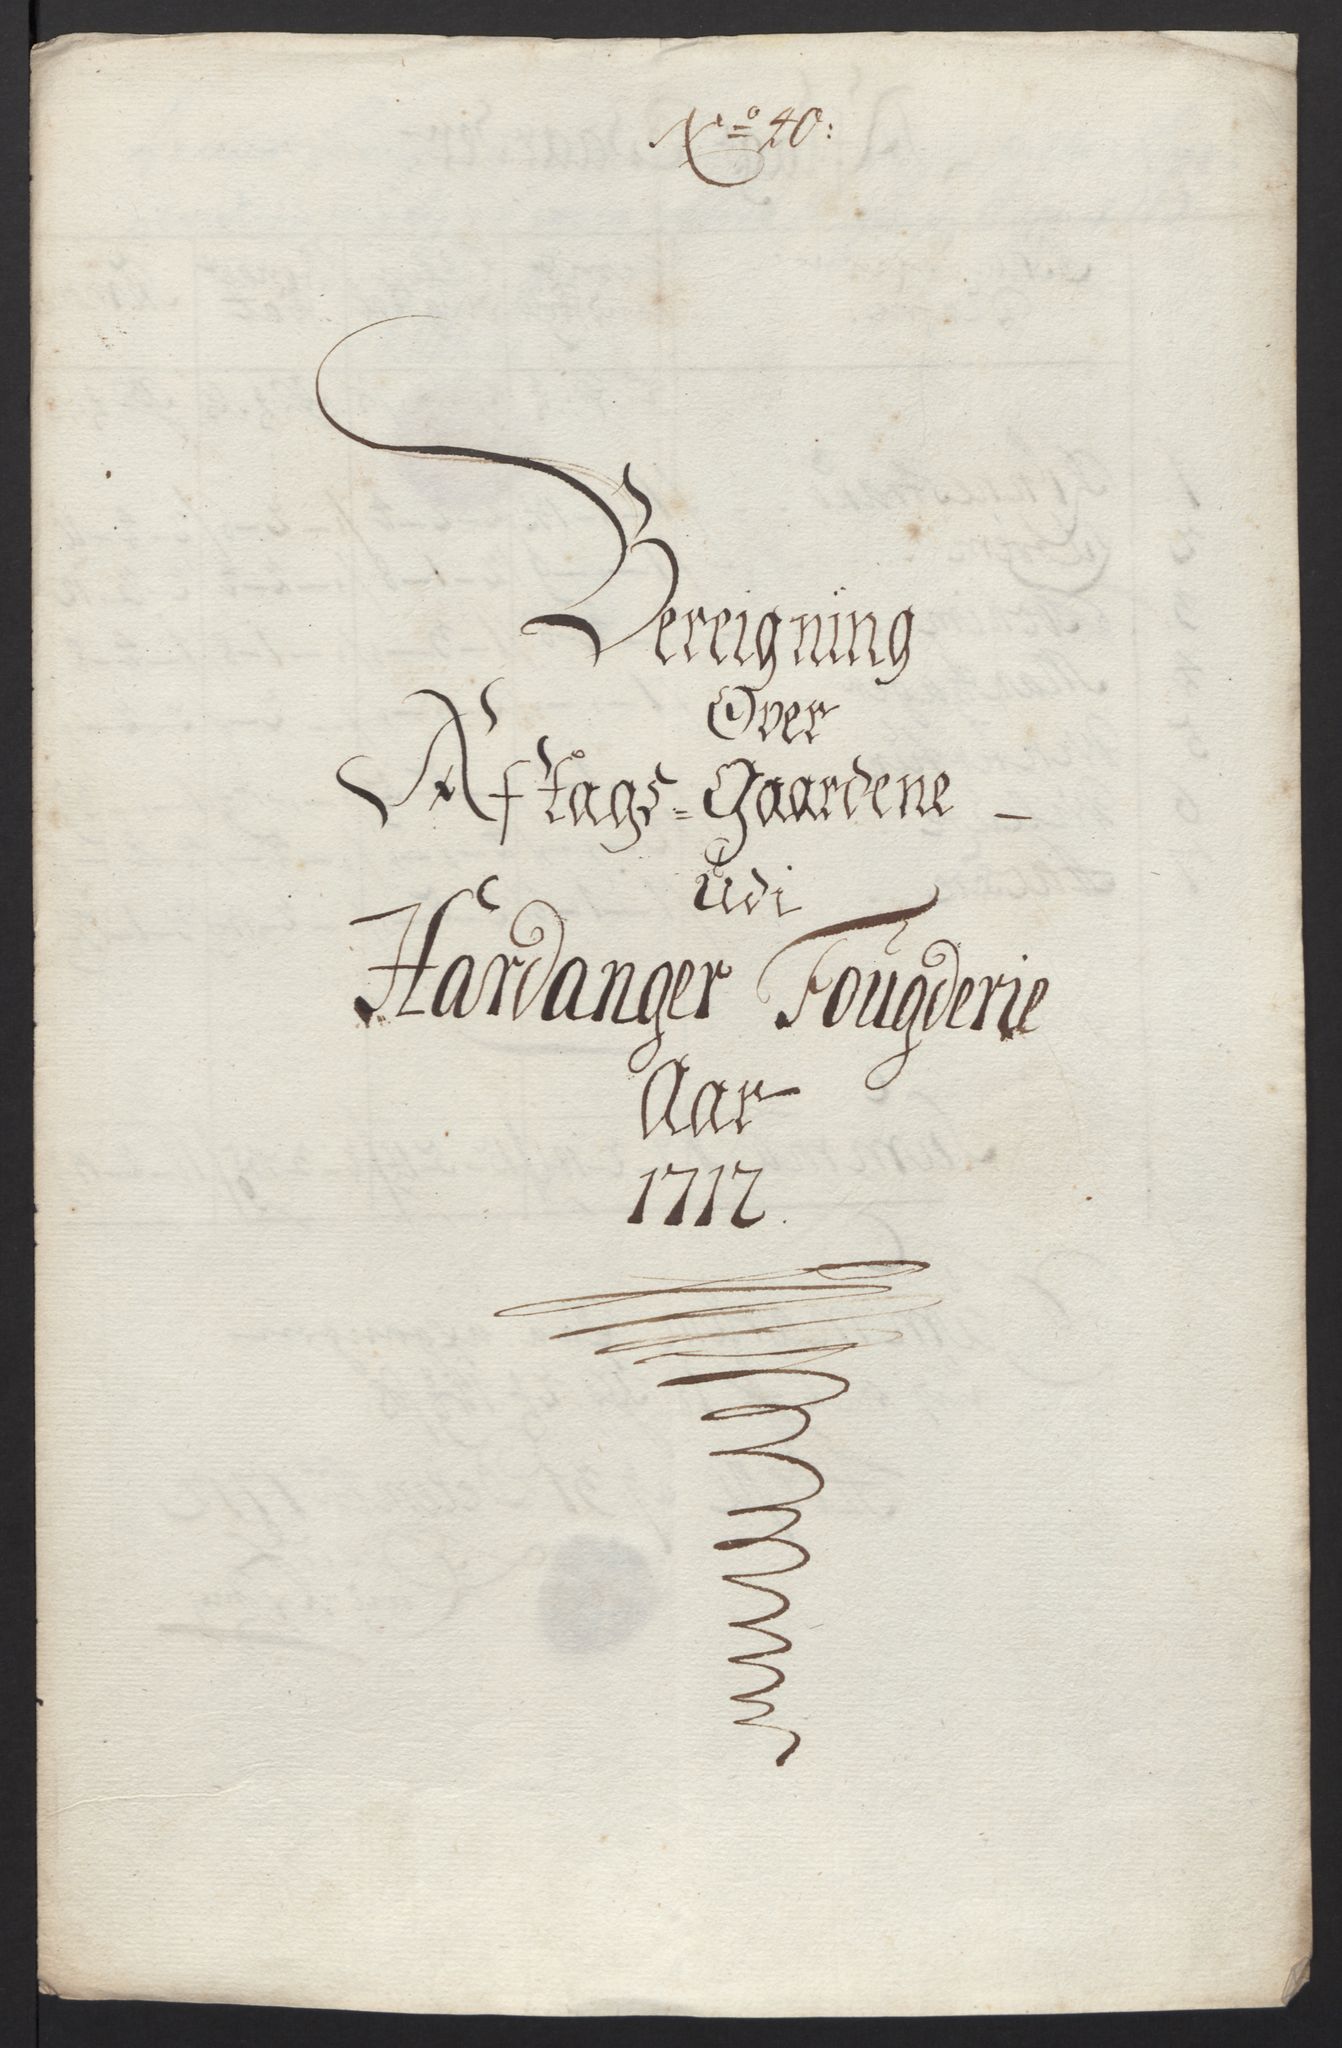 No 40:
Bereigning
Over
Aftags=Gaardene
udi
Hardanger Fougderie
Aar
1717.